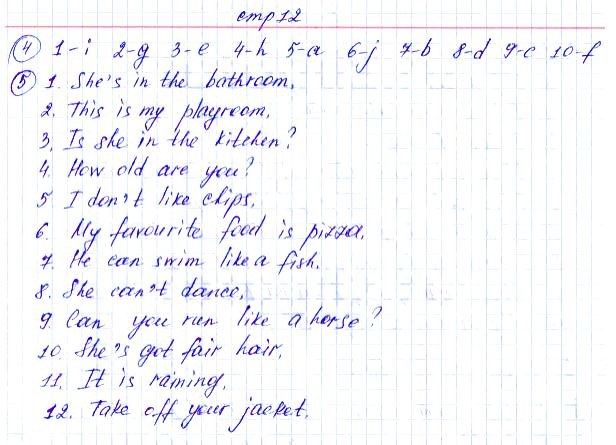 стр 12
4 1-i 2-g 3-e 4-h 5-a 6-j 7-b 8-d 9-c 10-f
5 1. She's in the bathroom.
2. This is my playroom.
3. Is she in the kitchen?
4. How old are you?
5 I don't like chips.
6. My favourite food is pizza.
7. He can swim like a fish.
8. She can't dance.
9. Can you run like a horse?
10. She's got fair hair.
11. It is raining.
12. Take off your jacket.